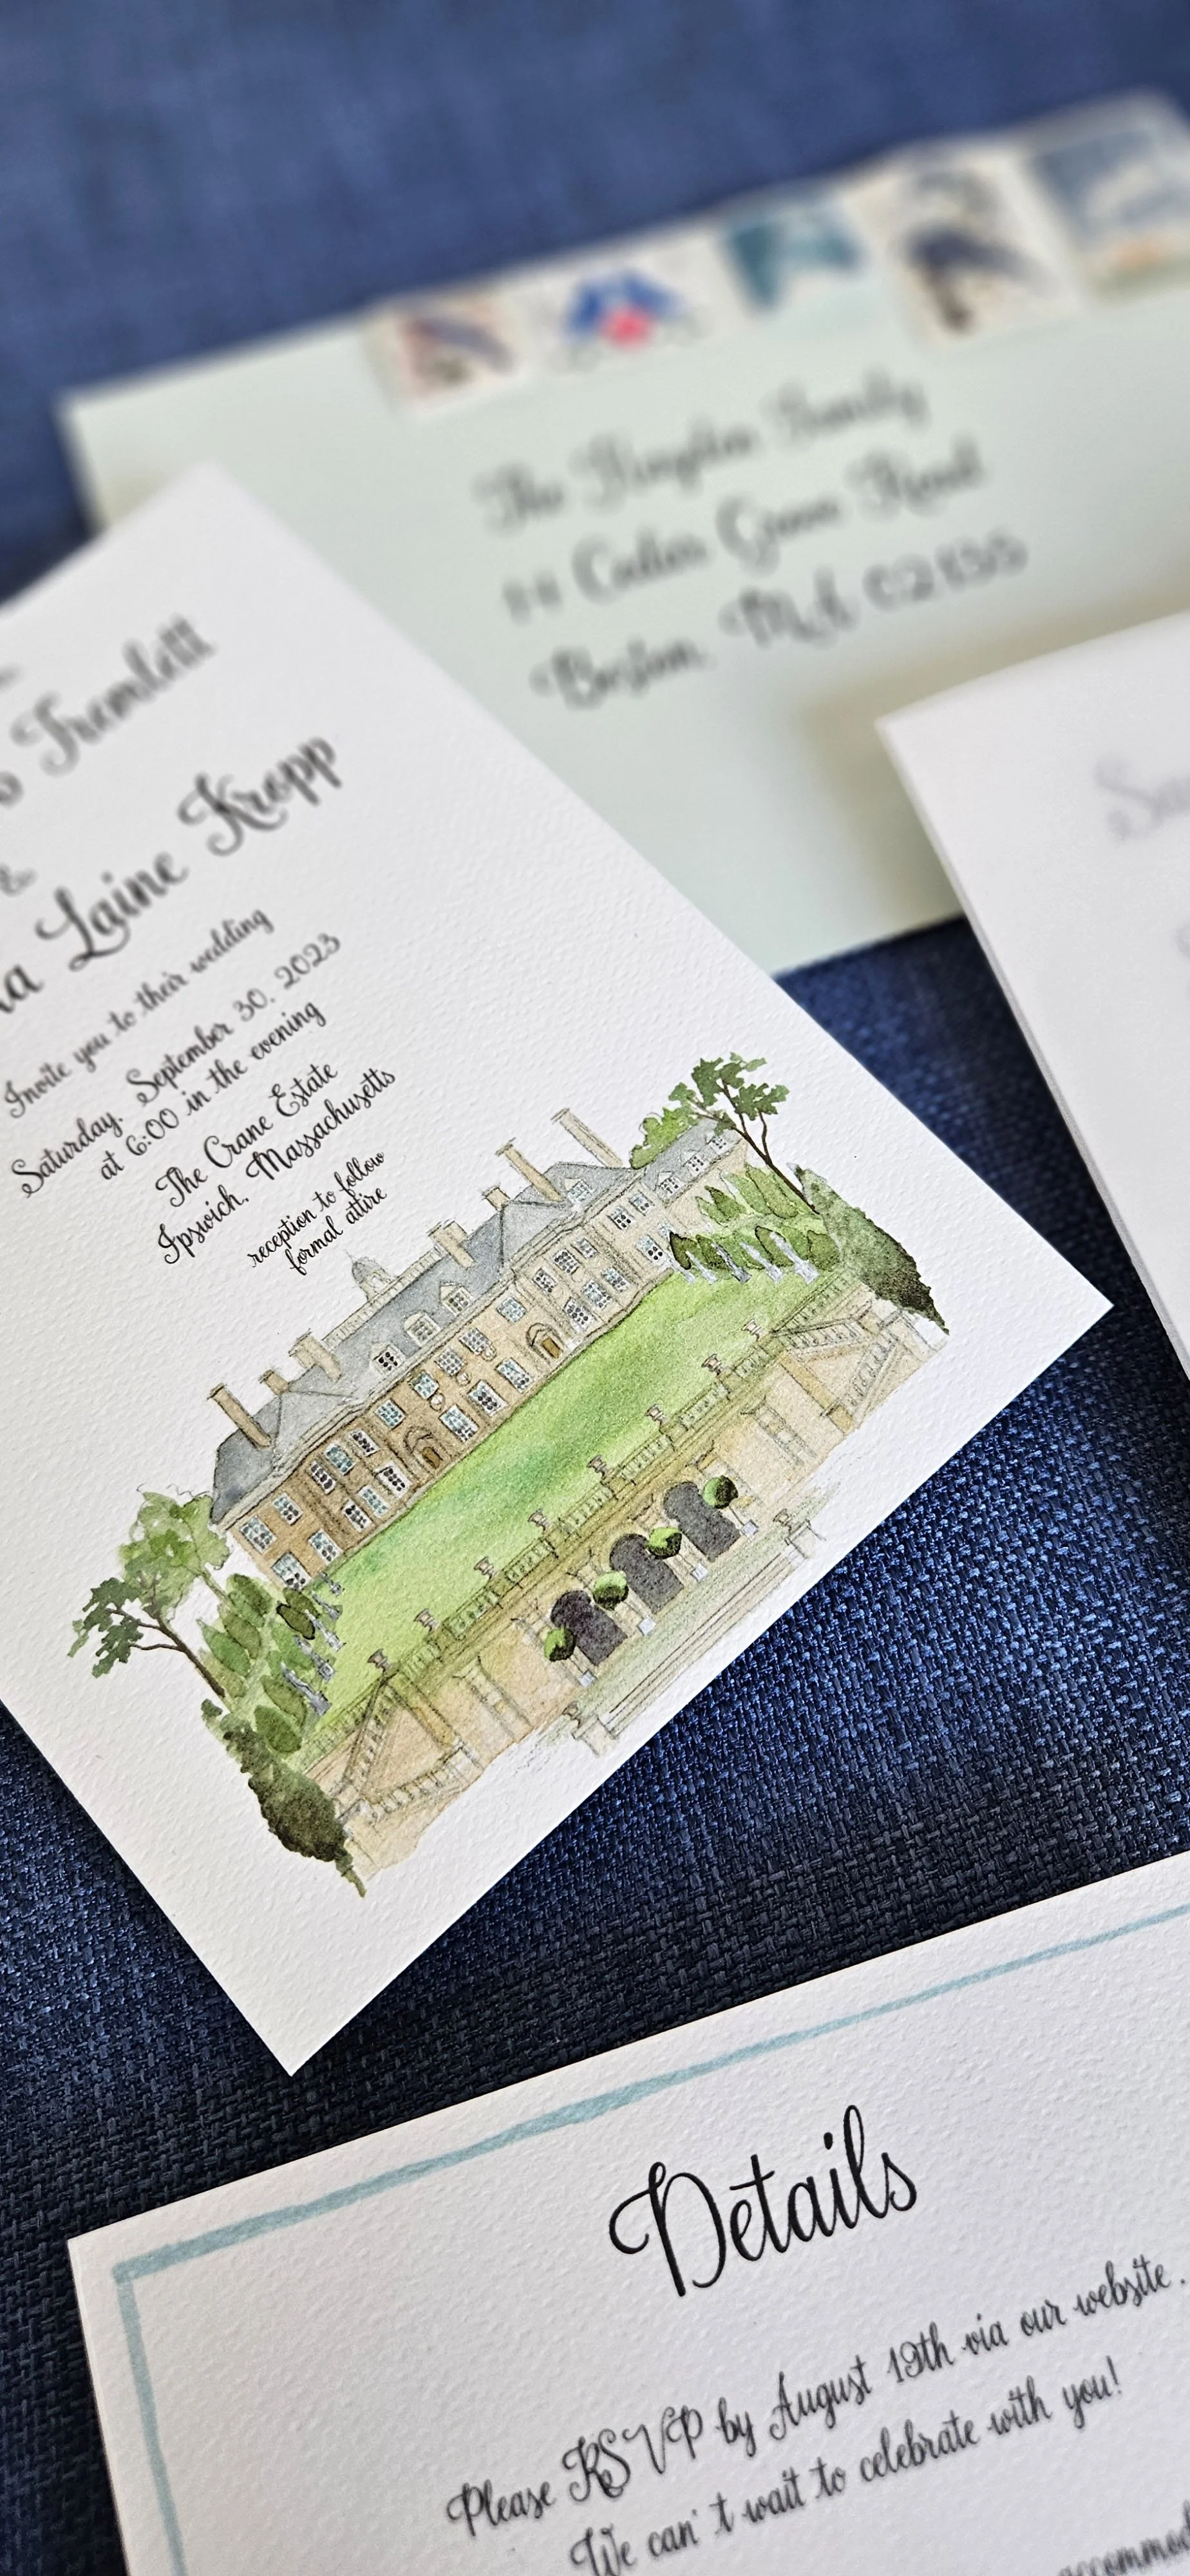 The Kingston Family
14 Cedar Grove Road
Boston, MA 02135
Tremlett
&
Laine Kropp
Invite you to their wedding
Saturday, September 30, 2023
at 6:00 in the evening
The Crane Estate
Ipswich, Massachusetts
reception to follow
formal attire
Details
Please RSVP by August 19th via our website.
We can't wait to celebrate with you!